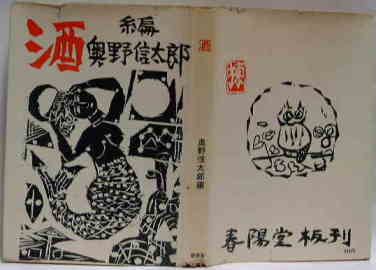 酒
編
奥野信太郎
酒
奥野信太郎編
春陽堂板刊